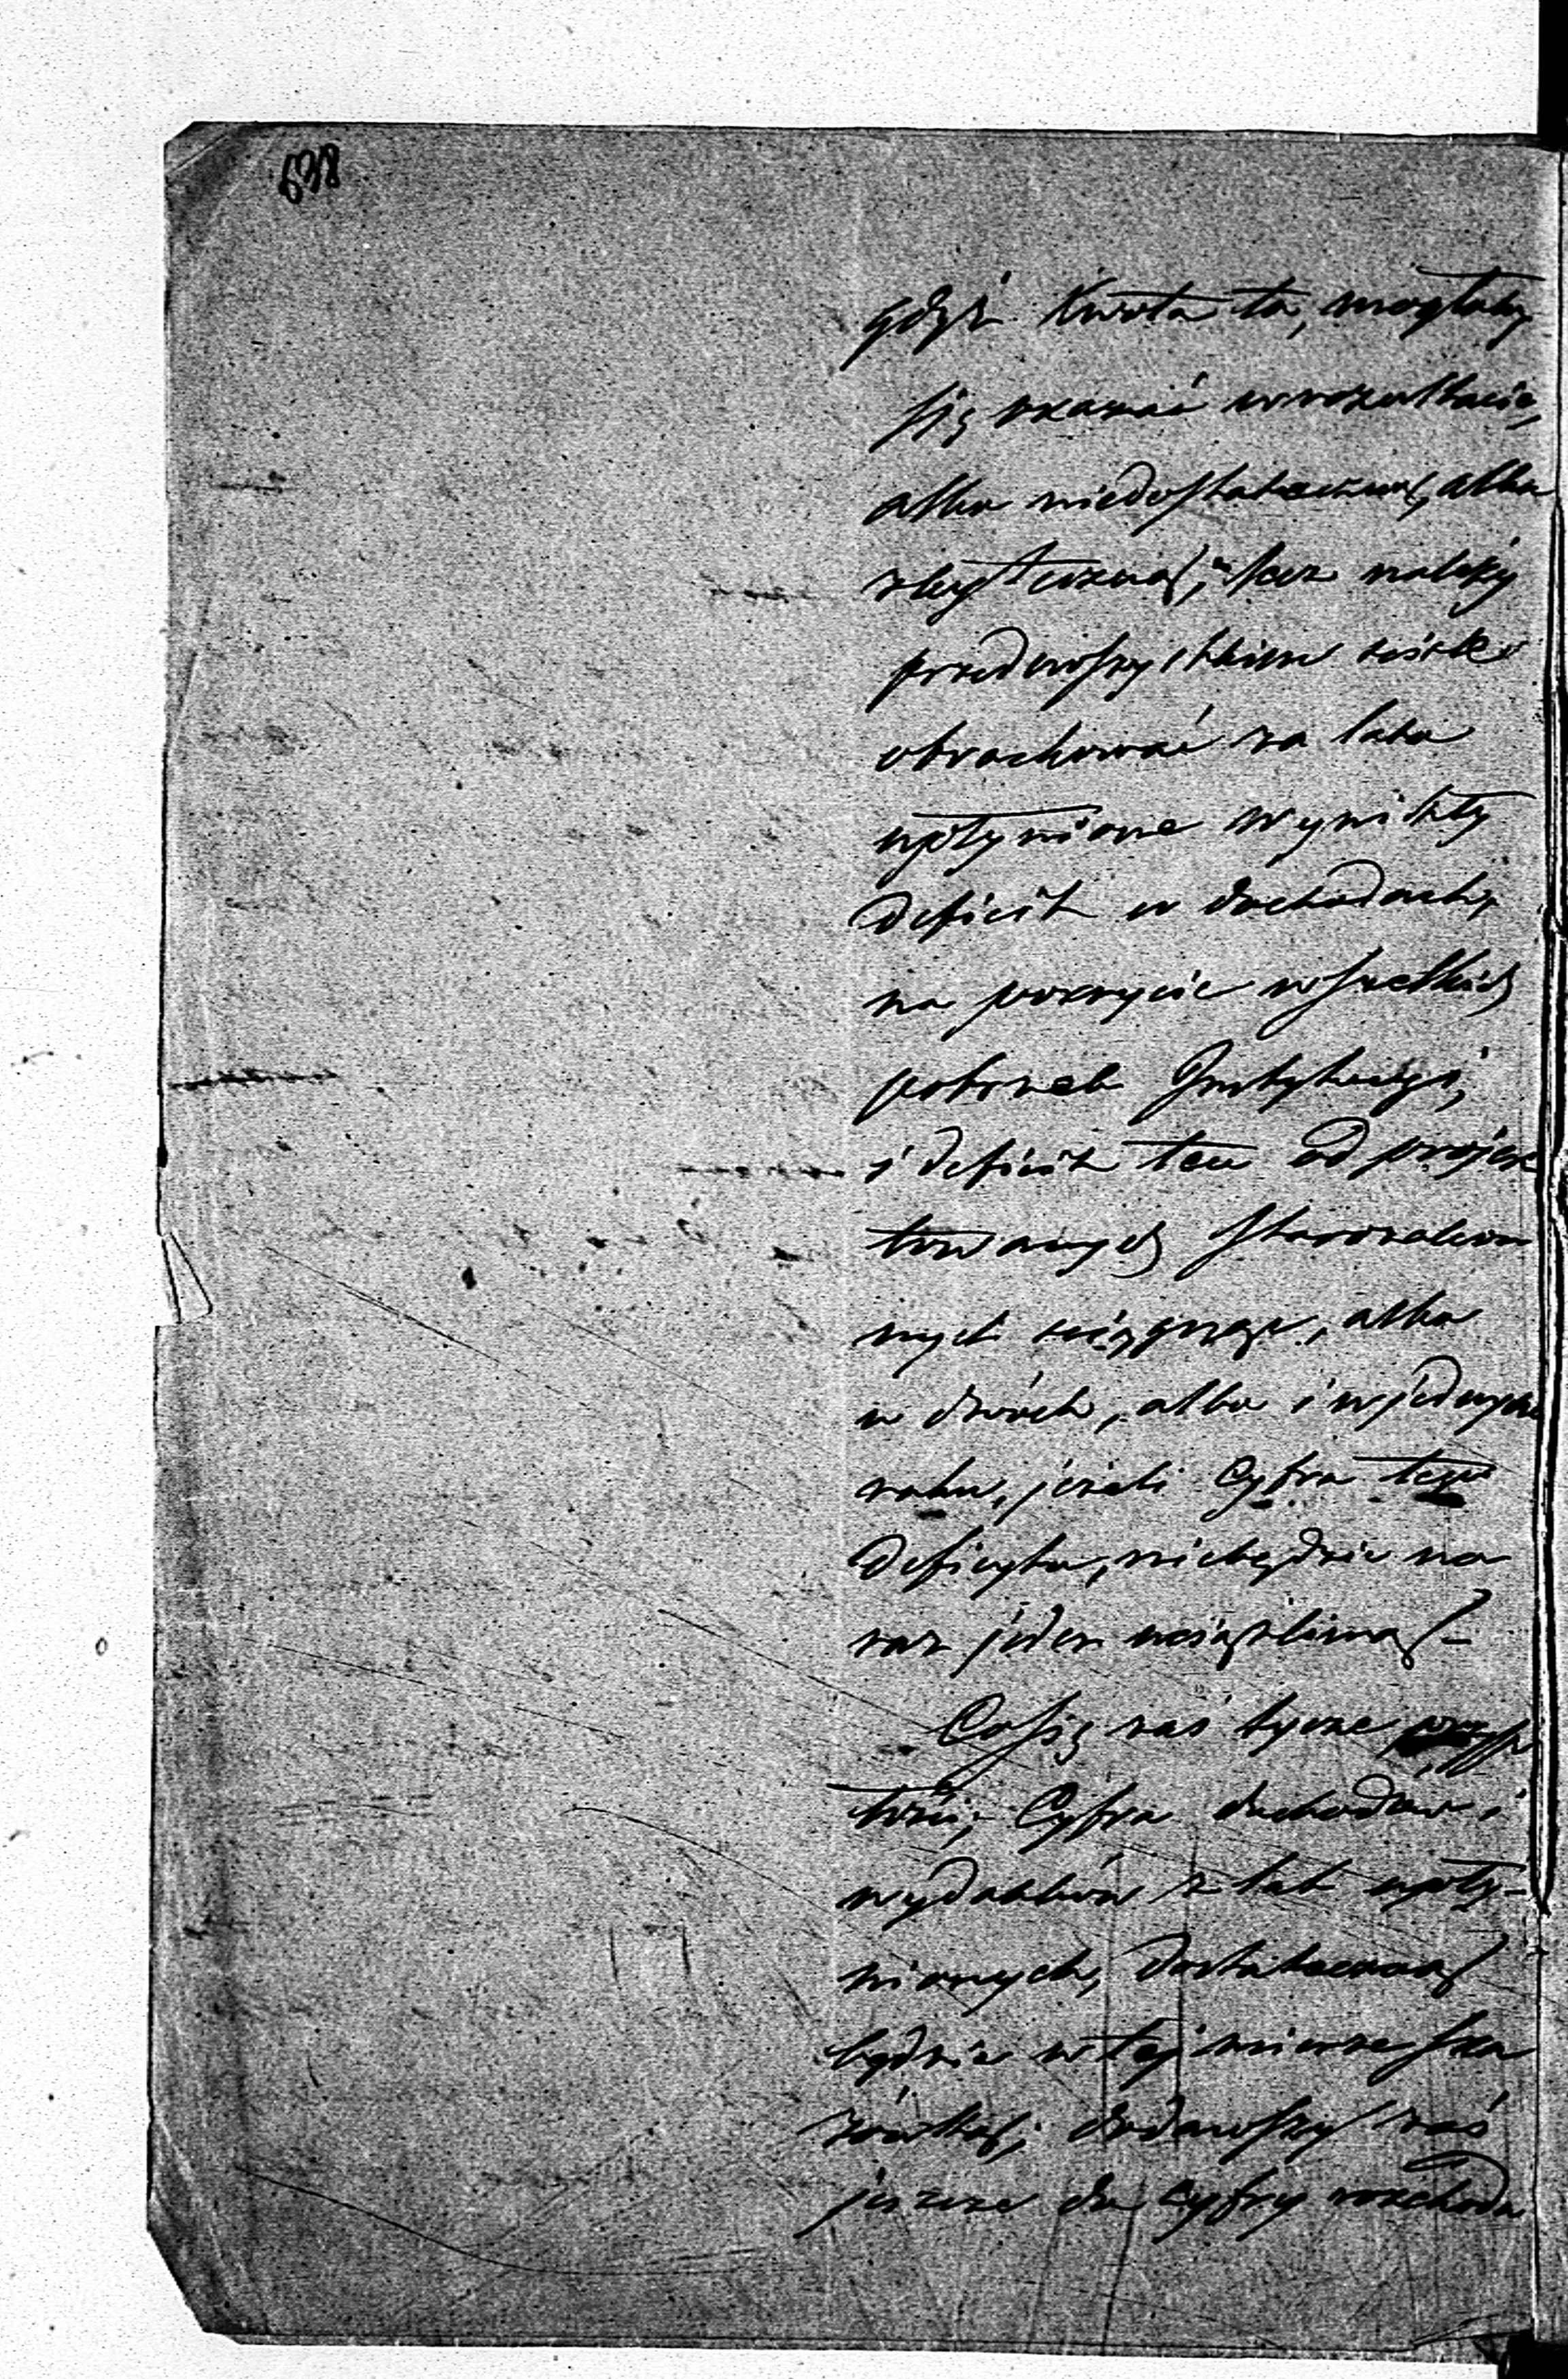 638
gdyż Kwota ta, mogłaby
się okazać w rezultacie,
albo niedostateczną, albo
zbyteczną; lecz należy
przedewszystkiem ściśle
obrachować za lata
upłynione wynikły
deficit w dochodach,
na pokrycie wszelkich
potrzeb Instytucyi,
i deficit ten od projek
towanych starozakon
nych ściągnąć, albo
w dwóch, albo i w jednym
roku, jeżeli cyfra tego
deficytu, niebędzie na
raz jeden uciążliwą –
Co się zaś tycze przysz
łości; Cyfra dochodów i
wydatków z lat upły-
nionych, dostateczną
będzie w tej mierze ska
zówką; dodawszy zaś
jeszcze do cyfry rozchodu